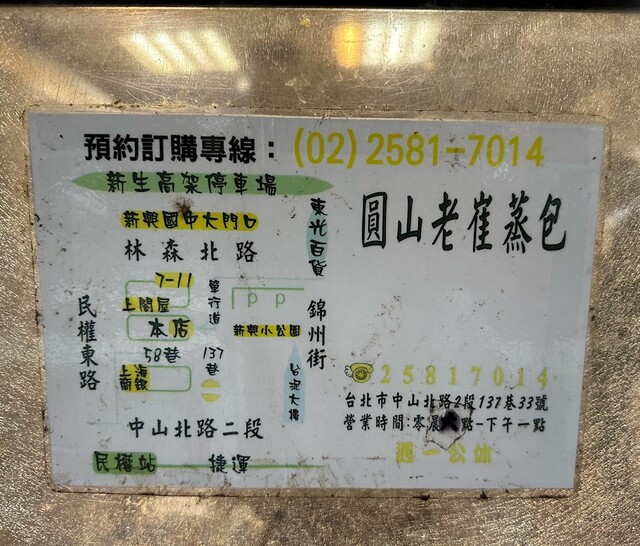 預約訂購專線：(02)2581-7014
新生高架停車場
新興國中大門口
林森北路
東光百貨
7-11
上閤屋
本店
單行道
PP
新興小公園
錦州街
民權東路
58巷
137巷
上海商銀
台泥大樓
中山北路二段
民權站 捷運
圓山老崔蒸包
☎25817014
台北市中山北路2段137巷33號
營業時間:零晨 點-下午一點
週一公休